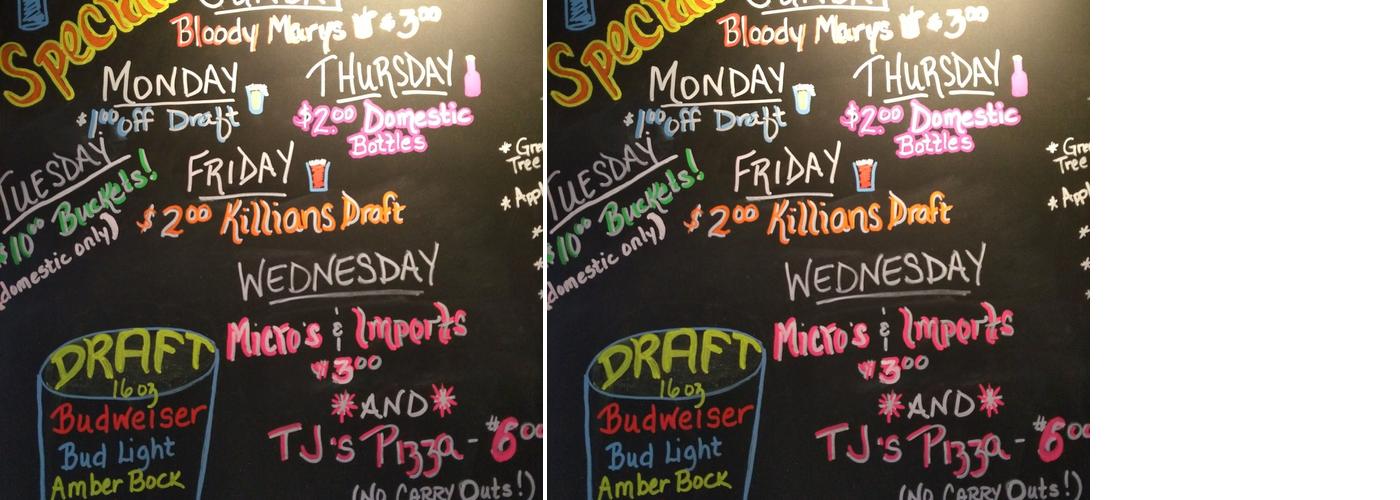 Specials
SUNDAY
Bloody Marys $3.00
MONDAY
$1.00 off Draft
THURSDAY
$2.00 Domestic
Bottles
TUESDAY
$10.00 Buckets!
(domestic only)
FRIDAY
$2.00 Killians Draft
WEDNESDAY
Micro's & Imports
$3.00
*AND*
TJ's Pizza - $6.00
(NO CARRY Outs!)
DRAFT
16 oz
Budweiser
Bud Light
Amber Bock
* Gre
Tree
* Appl
Specials
SUNDAY
Bloody Marys $3.00
MONDAY
$1.00 off Draft
THURSDAY
$2.00 Domestic
Bottles
TUESDAY
$10.00 Buckets!
(domestic only)
FRIDAY
$2.00 Killians Draft
WEDNESDAY
Micro's & Imports
$3.00
*AND*
TJ's Pizza - $6.00
(NO CARRY Outs!)
DRAFT
16 oz
Budweiser
Bud Light
Amber Bock
* Gre
Tree
* Appl